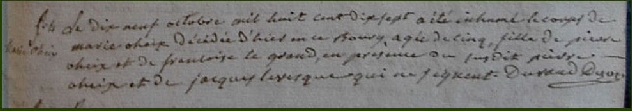 Le dix neuf octobre mil huit cent dix sept a été inhumé le corps de
marie oheix décédée d'hier en ce Bourg, agée de cinq, fille de pierre
oheix et de francoise le grand, en présence du susdit pierre
oheix et de jacques levesque qui ne signent Durand